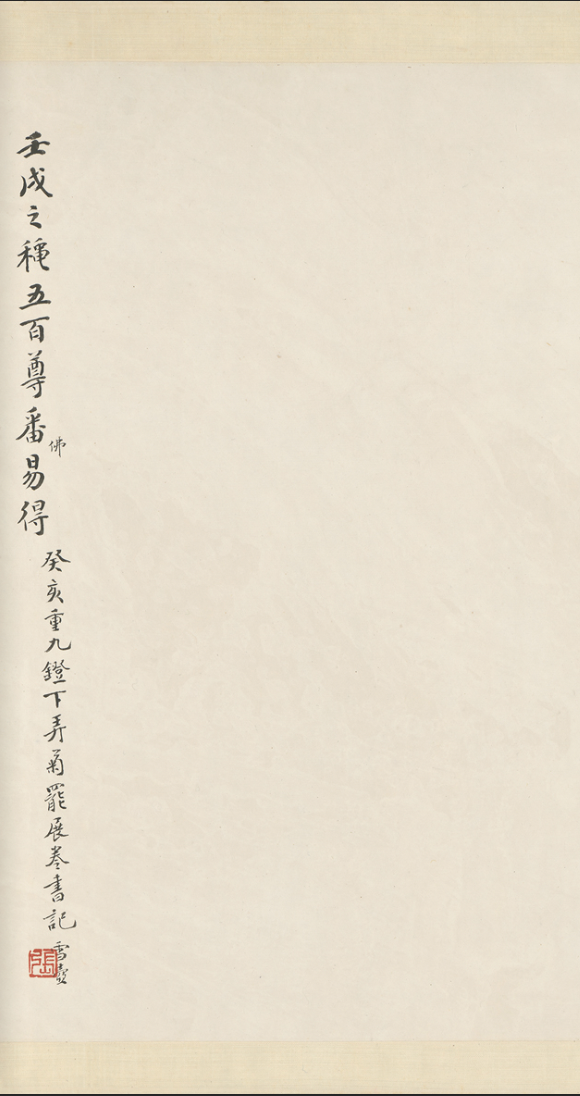 壬戌之穐五百尊番易得
佛
癸亥重九鐙下弄菊罷展卷書記
雪壺
張